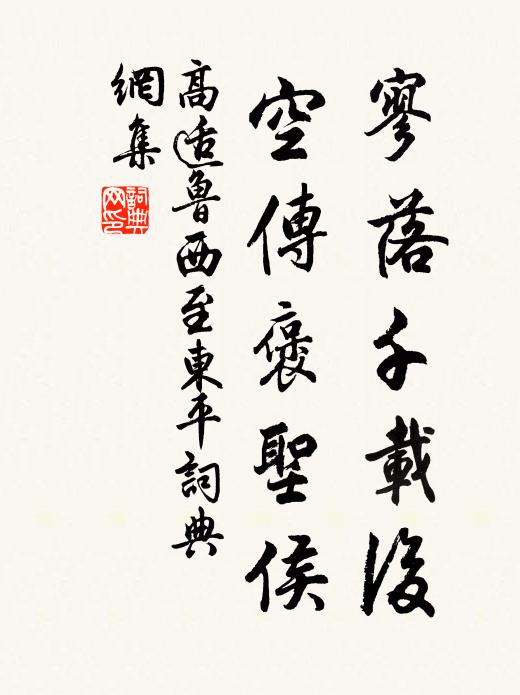 寥落千載後
空傳褒聖侯
高适魯西至東平詞典
網集
詞典
网印